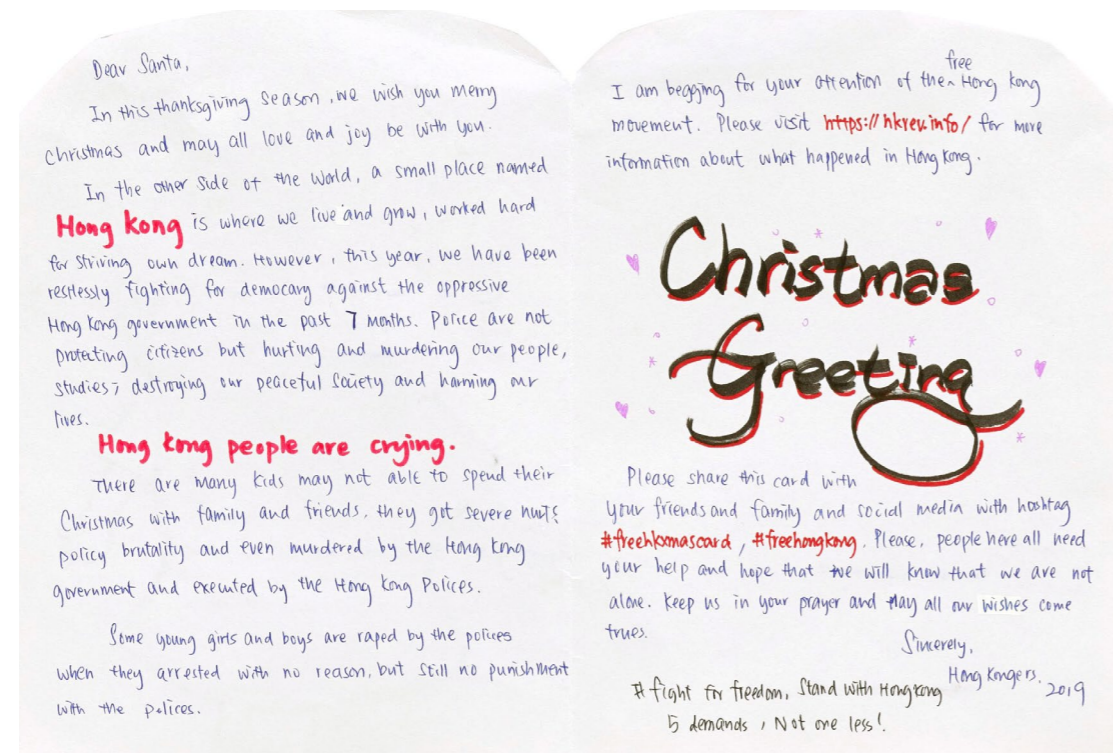 Dear Santa,
In this thanksgiving season, we wish you merry
christmas and may all love and joy be with you.
In the other side of the world, a small place named
Hong Kong is where we live and grow, worked hard
for striving own dream. However, this year, we have been
restlessly fighting for democary against the oppressive
Hong Kong government in the past 7 months. Police are not
protecting citizens but hurting and murdering our people,
studies; destroying our peaceful society and harming our
lives.
Hong Kong people are crying.
There are many kids may not able to spend their
Christmas with family and friends, they got severe
policy brutality and even murdered by the Hong Kong
government and executed by the Hong Kong Polices.
Some young girls and boys are raped by the polices
when they arrested with no reason, but still no punishment
with the polices.
free
I am begging for your attention of the Hong Kong
movement. Please visit https://hkrev.info/ for more
information about what happened in Hong Kong.
Christmas
Greeting
Please share this card with
your friends and family and social media with hashtag
#freehkxmascard, #freehongkong. Please, people here all need
your help and hope that we will know that we are not
alone. Keep us in your prayer and may all our wishes come
trues.
Sincerely,
Hong Kongers.
2019
# fight for freedom, Stand with Hong Kong
5 demands, Not one less!